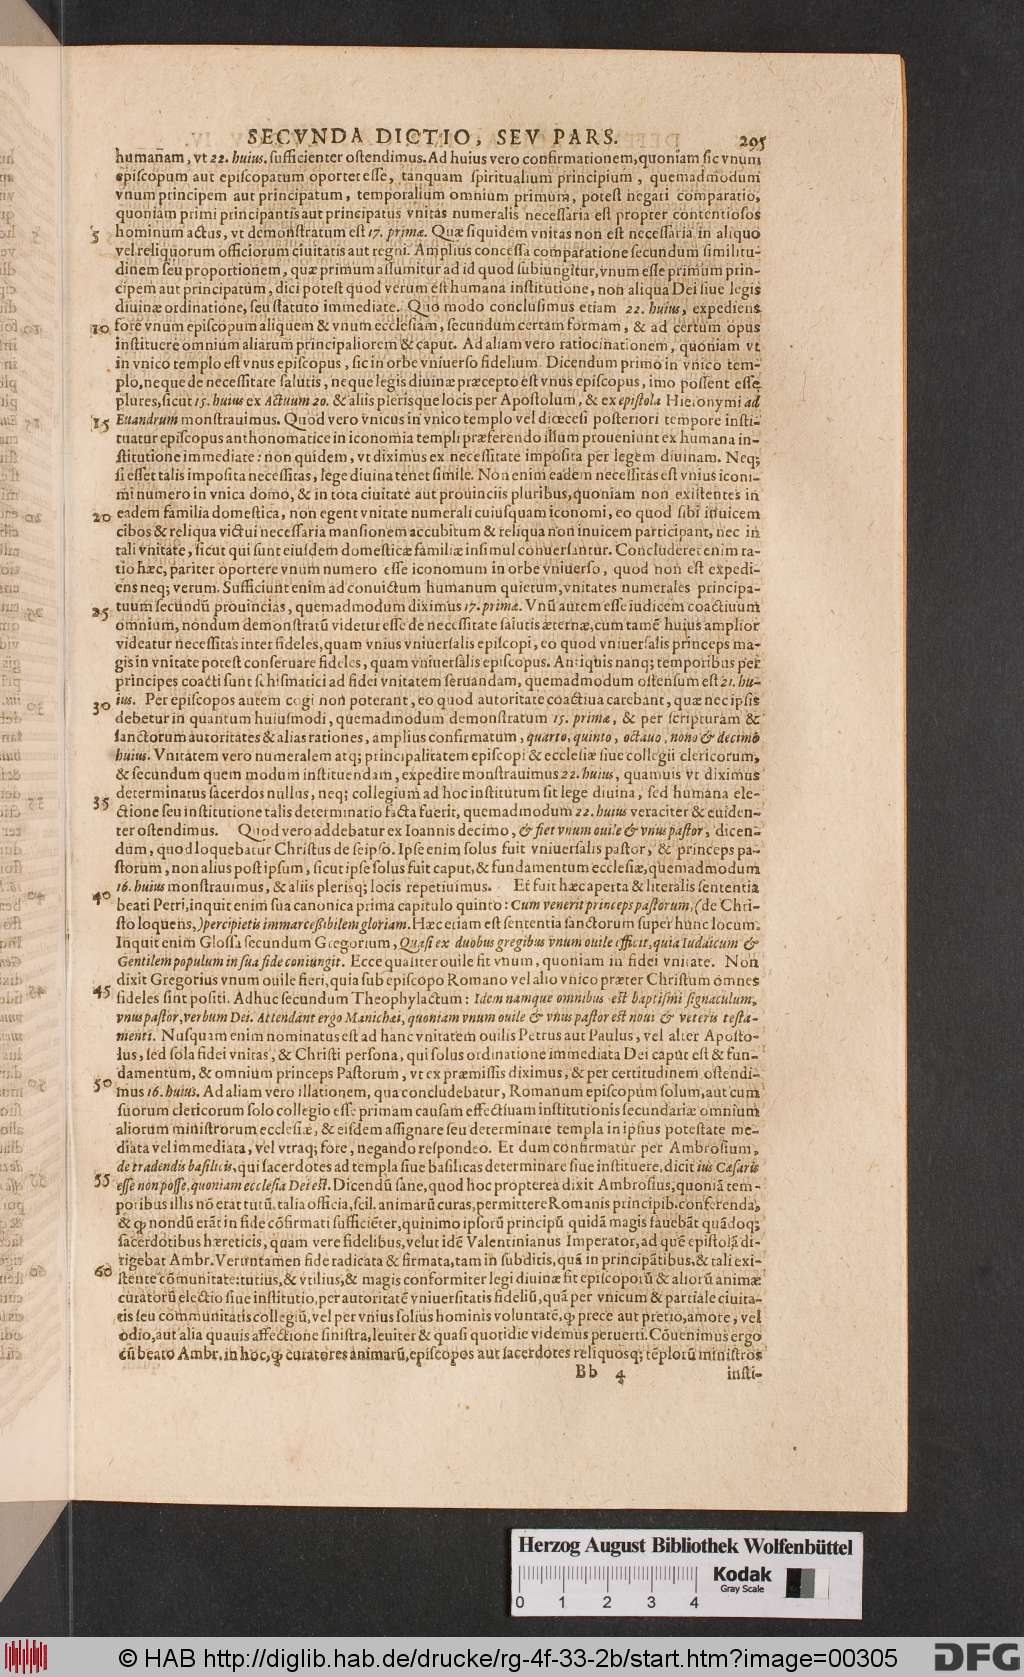 SECVNDA DICTIO, SEV PARS. 295
humanam, vt 22. huius. sufficienter ostendimus. Ad huius vero confirmationem, quoniam sic vnum
episcopum aut episcopatum oportet esse, tanquam spiritualium principium, quemadmodum
vnum principem aut principatum, temporalium omnium primum, potest negari comparatio,
quoniam primi principantis aut principatus vnitas numeralis necessaria est propter contentiosos
5 hominum actus, vt demonstratum est 17. primæ. Quæ siquidem vnitas non est necessaria in aliquo
vel reliquorum officiorum ciuitatis aut regni. Amplius concessa comparatione secundum similitu-
dinem seu proportionem, quæ primum assumitur ad id quod subiungitur, vnum esse primum prin-
cipem aut principatum, dici potest quod verum est humana institutione, non aliqua Dei siue legis
diuinæ ordinatione, seu statuto immediate. Quo modo conclusimus etiam 22. huius, expediens
10 fore vnum episcopum aliquem & vnum ecclesiam, secundum certam formam, & ad certum opus
instituere omnium aliarum principaliorem & caput. Ad aliam vero ratiocinationem, quoniam vt
in vnico templo est vnus episcopus, sic in orbe vniuerso fidelium. Dicendum primo in vnico tem-
plo, neque de necessitate salutis, neque legis diuinæ præcepto est vnus episcopus, imo possent esse
plures, sicut 15. huius ex Actuum 20. & aliis plerisque locis per Apostolum, & ex epistola Hieronymi ad
15 Euandrum monstrauimus. Quod vero vnicus in vnico templo vel diœcesi posteriori tempore insti-
tuatur episcopus anthonomatice in iconomia templi præferendo illum proueniunt ex humana in-
stitutione immediate: non quidem, vt diximus ex necessitate imposita per legem diuinam. Neq;
si esset talis imposita necessitas, lege diuina tenet simile. Non enim eadem necessitas est vnius iconi-
mi numero in vnica domo, & in tota ciuitate aut prouinciis pluribus, quoniam non existentes in
20 eadem familia domestica, non egent vnitate numerali cuiusquam iconomi, eo quod sibi inuicem
cibos & reliqua victui necessaria mansionem accubitum & reliqua non inuicem participant, nec in
tali vnitate, sicut qui sunt eiusdem domesticæ familiæ insimul conuersantur. Concluderet enim ra-
tio hæc, pariter oportere vnum numero esse iconomum in orbe vniuerso, quod non est expedi-
ens neq; verum. Sufficiunt enim ad conuictum humanum quietum, vnitates numerales principa-
25 tuum secundū prouincias, quemadmodum diximus 17. primæ. Vnū autem esse iudicem coactiuum
omnium, nondum demonstratū videtur esse de necessitate salutis æternæ, cum tamē huius amplior
videatur necessitas inter fideles, quam vnius vniuersalis episcopi, eo quod vniuersalis princeps ma-
gis in vnitate potest conseruare fideles, quam vniuersalis episcopus. Antiquis nanq; temporibus per
principes coacti sunt schismatici ad fidei vnitatem seruandam, quemadmodum ostensum est 21. hu-
30 ius. Per episcopos autem cogi non poterant, eo quod autoritate coactiua carebant, quæ nec ipsis
debetur in quantum huiusmodi, quemadmodum demonstratum 15. primæ, & per scripturam &
sanctorum autoritates & alias rationes, amplius confirmatum, quarto, quinto, octauo, nono & decimo
huius. Vnitatem vero numeralem atq; principalitatem episcopi & ecclesiæ siue collegii clericorum,
& secundum quem modum instituendam, expedire monstrauimus 22. huius, quamuis vt diximus
35 determinatus sacerdos nullus, neq; collegium ad hoc institutum sit lege diuina, sed humana ele-
ctione seu institutione talis determinatio facta fuerit, quemadmodum 22. huius veraciter & euiden-
ter ostendimus. Quod vero addebatur ex Ioannis decimo, & fiet vnum ouile & vnus pastor, dicen-
dum, quod loquebatur Christus de seipso. Ipse enim solus fuit vniuersalis pastor, & princeps pa-
storum, non alius post ipsum, sicut ipse solus fuit caput, & fundamentum ecclesiæ, quemadmodum
16. huius monstrauimus, & aliis plerisq; locis repetiuimus. Et fuit hæc aperta & literalis sententia
40 beati Petri, inquit enim sua canonica prima capitulo quinto: Cum venerit princeps pastorum, (de Chri-
sto loquens,) percipietis immarcessibilem gloriam. Hæc etiam est sententia sanctorum super hunc locum.
Inquit enim Glossa secundum Gregorium, Quasi ex duobus gregibus vnum ouile efficit, quia Iudaicum &
Gentilem populum in sua fide coniungit. Ecce qualiter ouile fit vnum, quoniam in fidei vnitate. Non
dixit Gregorius vnum ouile fieri, quia sub episcopo Romano vel alio vnico præter Christum omnes
45 fideles sint positi. Adhuc secundum Theophylactum: Idem namque omnibus est baptismi signaculum,
vnus pastor, verbum Dei. Attendant ergo Manichæi, quoniam vnum ouile & vnus pastor est noui & veteris testa-
menti. Nusquam enim nominatus est ad hanc vnitatem ouilis Petrus aut Paulus, vel alter Aposto-
lus, sed sola fidei vnitas, & Christi persona, qui solus ordinatione immediata Dei caput est & fun-
damentum, & omnium princeps Pastorum, vt ex præmissis diximus, & per certitudinem ostendi-
50 mus 16. huius. Ad aliam vero illationem, qua concludebatur, Romanum episcopum solum, aut cum
suorum clericorum solo collegio esse primam causam effectiuam institutionis secundariæ omnium
aliorum ministrorum ecclesiæ, & eisdem assignare seu determinare templa in ipsius potestate me-
diata vel immediata, vel vtraq; fore, negando respondeo. Et dum confirmatur per Ambrosium,
de tradendis basilicis, qui sacerdotes ad templa siue basilicas determinare siue instituere, dicit ius Cæsaris
55 esse non posse, quoniam ecclesia Dei est. Dicendū sane, quod hoc propterea dixit Ambrosius, quoniā tem-
poribus illis nō erat tutū, talia officia, scil. animarū curas, permittere Romanis principib. conferenda,
& q nondū erāt in fide cōfirmati sufficiēter, quinimo ipsorū principū quidā magis fauebāt quādoq;
sacerdotibus hæreticis, quam vere fidelibus, velut idē Valentinianus Imperator, ad quē epistolā di-
rigebat Ambr. Veruntamen fide radicata & firmata, tam in subditis, quā in principātibus, & tali exi-
60 stente cōmunitate: tutius, & vtilius, & magis conformiter legi diuinæ fit episcoporū & aliorū animæ
curatorū electio siue institutio, per autoritatē vniuersitatis fideliū, quā per vnicum & partiale ciuita-
tis seu communitatis collegiū, vel per vnius solius hominis voluntatē, q prece aut pretio, amore, vel
odio, aut alia quauis affectione sinistra, leuiter & quasi quotidie videmus peruerti. Cōuenimus ergo
cū beato Ambr. in hoc, q curatores animarū, episcopos aut sacerdotes reliquosq; tēplorū ministros
Bb 4 insti-
Herzog August Bibliothek Wolfenbüttel
Kodak
Gray Scale
0 1 2 3 4
© HAB http://diglib.hab.de/drucke/rg-4f-33-2b/start.htm?image=00305
DFG